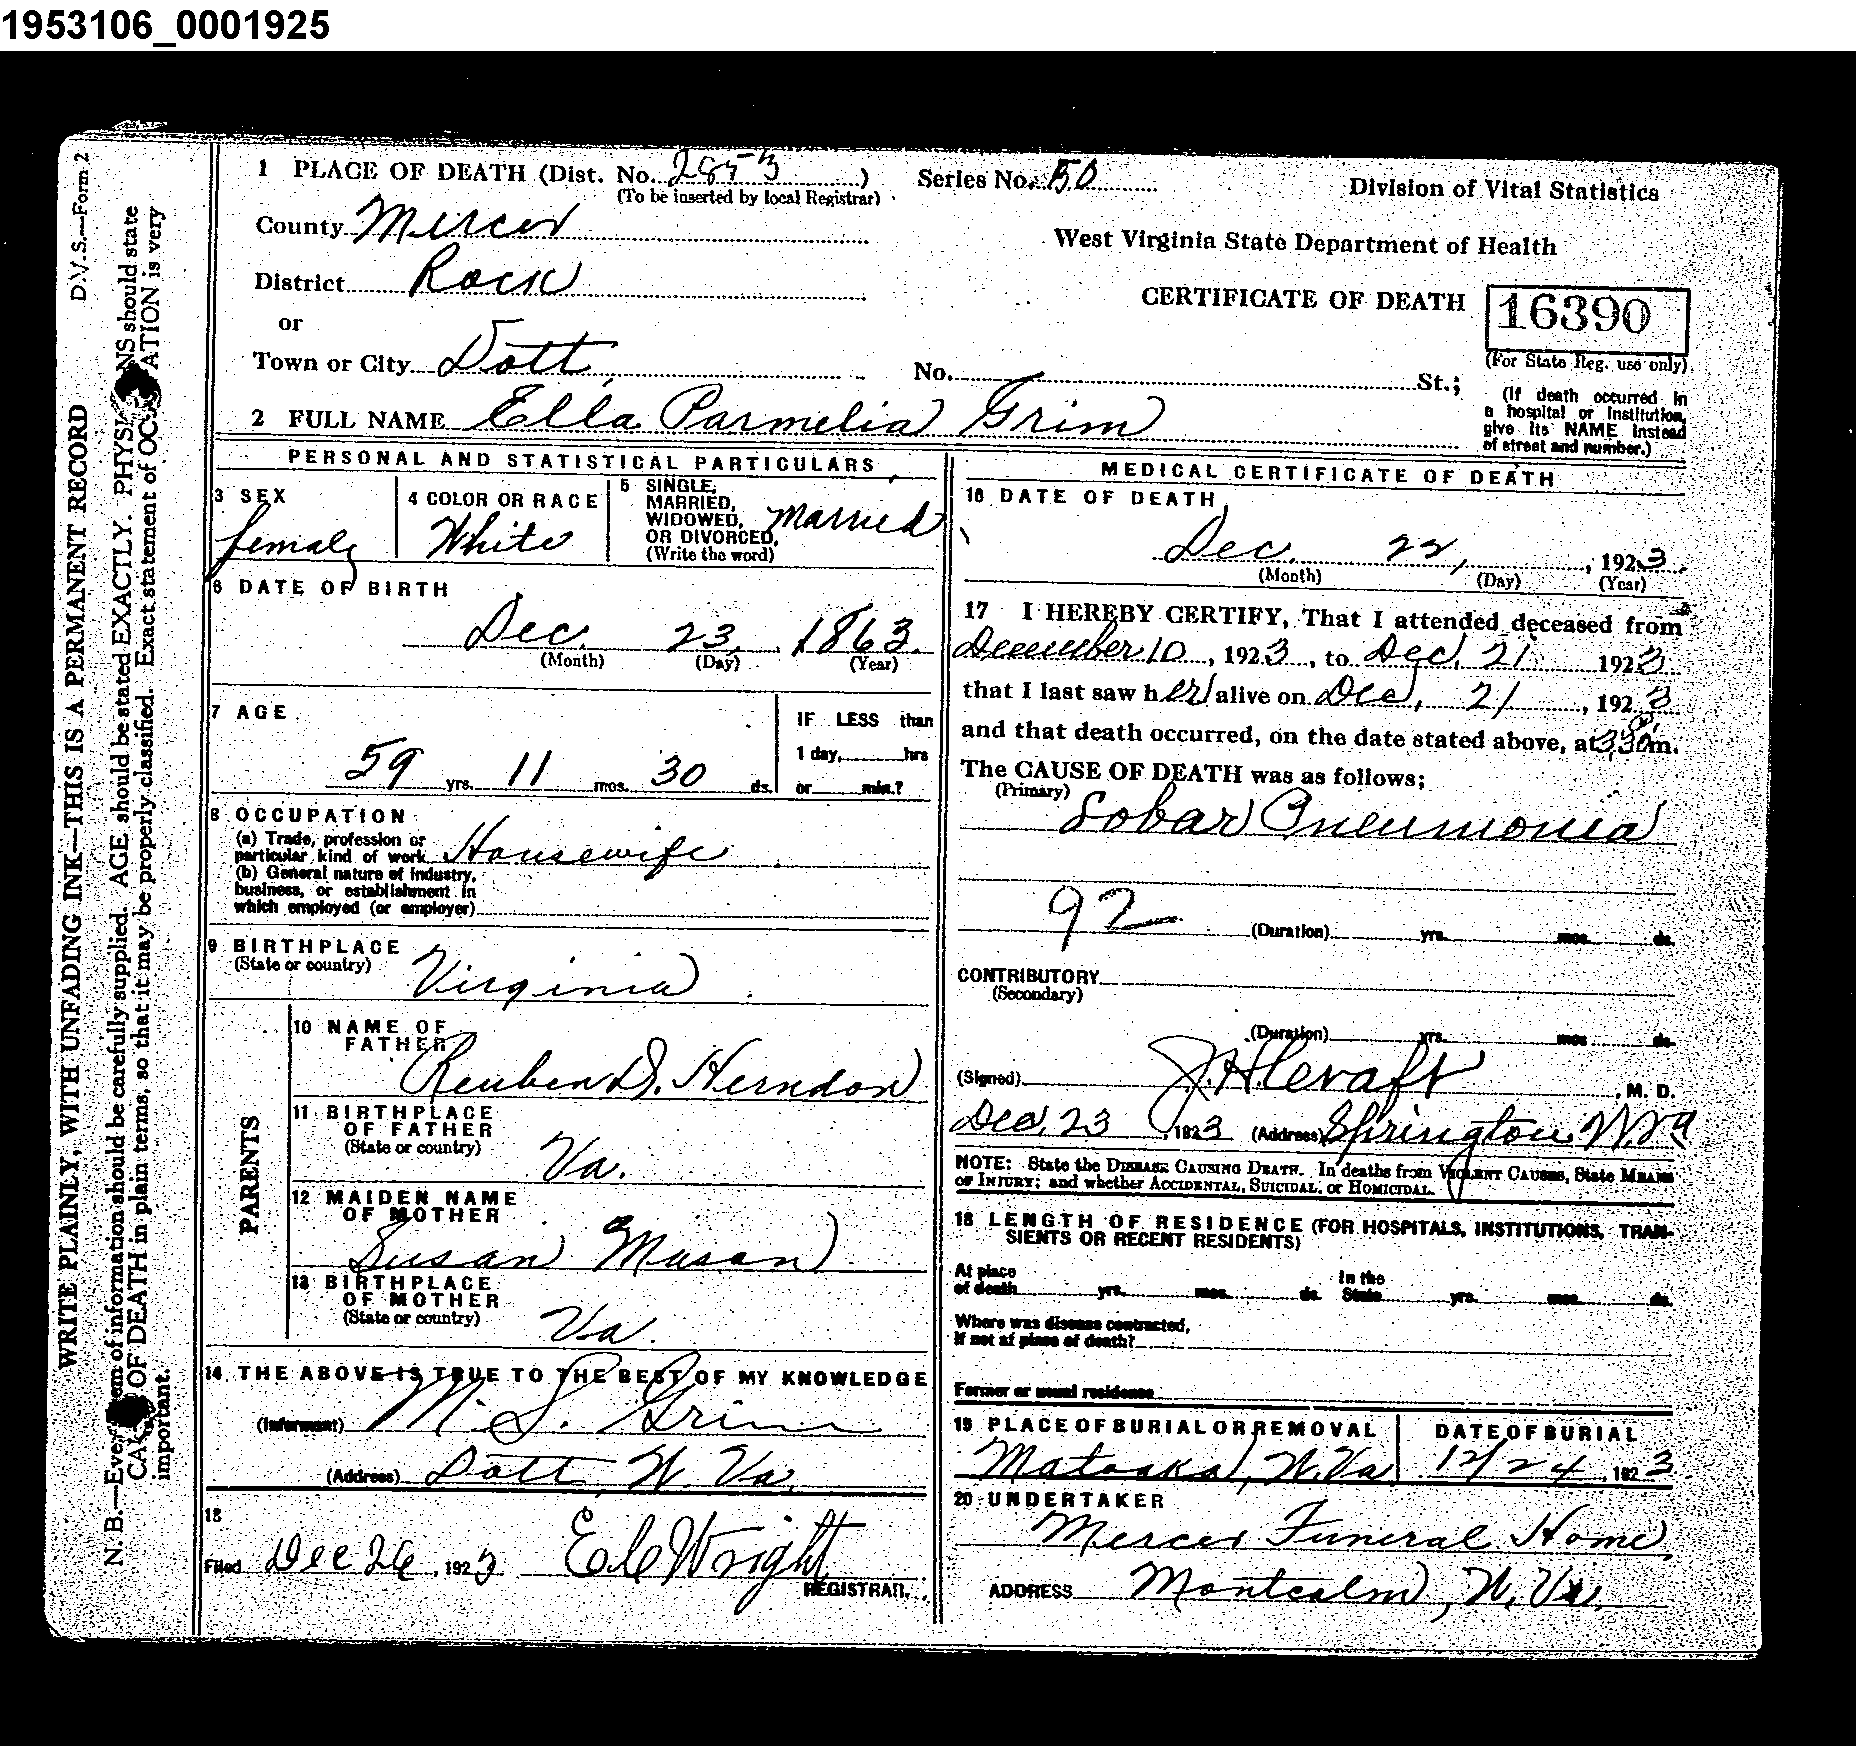 1953106_0001925
D.V.S.—Form 2
WRITE PLAINLY, WITH UNFADING INK—THIS IS A PERMANENT RECORD
N. B.—Every item of information should be carefully supplied. AGE should be stated EXACTLY. PHYSI NS should state
CAU OF DEATH in plain terms, so that it may be properly classified. Exact statement of OC ATION is very
important.
1 PLACE OF DEATH (Dist. No. 2853)
(To be inserted by local Registrar)
Series No. 50
Division of Vital Statistics
County Mercer
West Virginia State Department of Health
District Rock
CERTIFICATE OF DEATH
16390
(For State Reg. use only)
or
Town or City Dott
No. St.;
(If death occurred in
a hospital or Institution,
give its NAME instead
of street and number.)
2 FULL NAME Ella Parmelia Grim
PERSONAL AND STATISTICAL PARTICULARS
3 SEX
female
4 COLOR OR RACE
White
5 SINGLE,
MARRIED,
WIDOWED,
OR DIVORCED,
(Write the word)
Married
6 DATE OF BIRTH
Dec. 23, 1863.
(Month) (Day) (Year)
7 AGE
59 yrs. 11 mos. 30 ds.
IF LESS than
1 day, hrs
or min.?
8 OCCUPATION
(a) Trade, profession or
particular kind of work Housewife
(b) General nature of Industry,
business, or establishment in
which employed (or employer)
9 BIRTHPLACE
(State or country) Virginia
PARENTS
10 NAME OF
FATHER
Reuben D. Herndon
11 BIRTHPLACE
OF FATHER
(State or country) Va.
12 MAIDEN NAME
OF MOTHER
Susan Mason
13 BIRTHPLACE
OF MOTHER
(State or country) Va.
14 THE ABOVE IS TRUE TO THE BEST OF MY KNOWLEDGE
(Informant) M. S. Grim
(Address) Dott, W. Va.
15
Filed Dec 26, 1923 Wright
REGISTRAR
MEDICAL CERTIFICATE OF DEATH
16 DATE OF DEATH
Dec. 22, , 1923.
(Month) (Day) (Year)
17 I HEREBY CERTIFY, That I attended deceased from
December 10, 1923, to Dec. 21 1923
that I last saw her alive on Dec, 21, 1923
and that death occurred, on the date stated above, at 3.30 m.
The CAUSE OF DEATH was as follows:
(Primary)
Lobar Pneumonia
92
(Duration) yrs. mos. ds.
CONTRIBUTORY
(Secondary)
(Duration) yrs. mos. ds.
(Signed) , M. D.
Dec. 23, 1923 (Address) Springton, W. Va
NOTE: State the DISEASE CAUSING DEATH. In deaths from VIOLENT CAUSES, State MEANS
OF INJURY; and whether ACCIDENTAL, SUICIDAL, or HOMICIDAL.
18 LENGTH OF RESIDENCE (FOR HOSPITALS, INSTITUTIONS, TRAN-
SIENTS OR RECENT RESIDENTS)
At place
of death yrs. mos. ds. In the
State yrs. mos. ds.
Where was disease contracted,
if not at place of death?
Former or usual residence
19 PLACE OF BURIAL OR REMOVAL
Matoaka, W. Va
DATE OF BURIAL
12/24, 1923
20 UNDERTAKER
Mercer Funeral Home
ADDRESS Montcalm, W. Va.